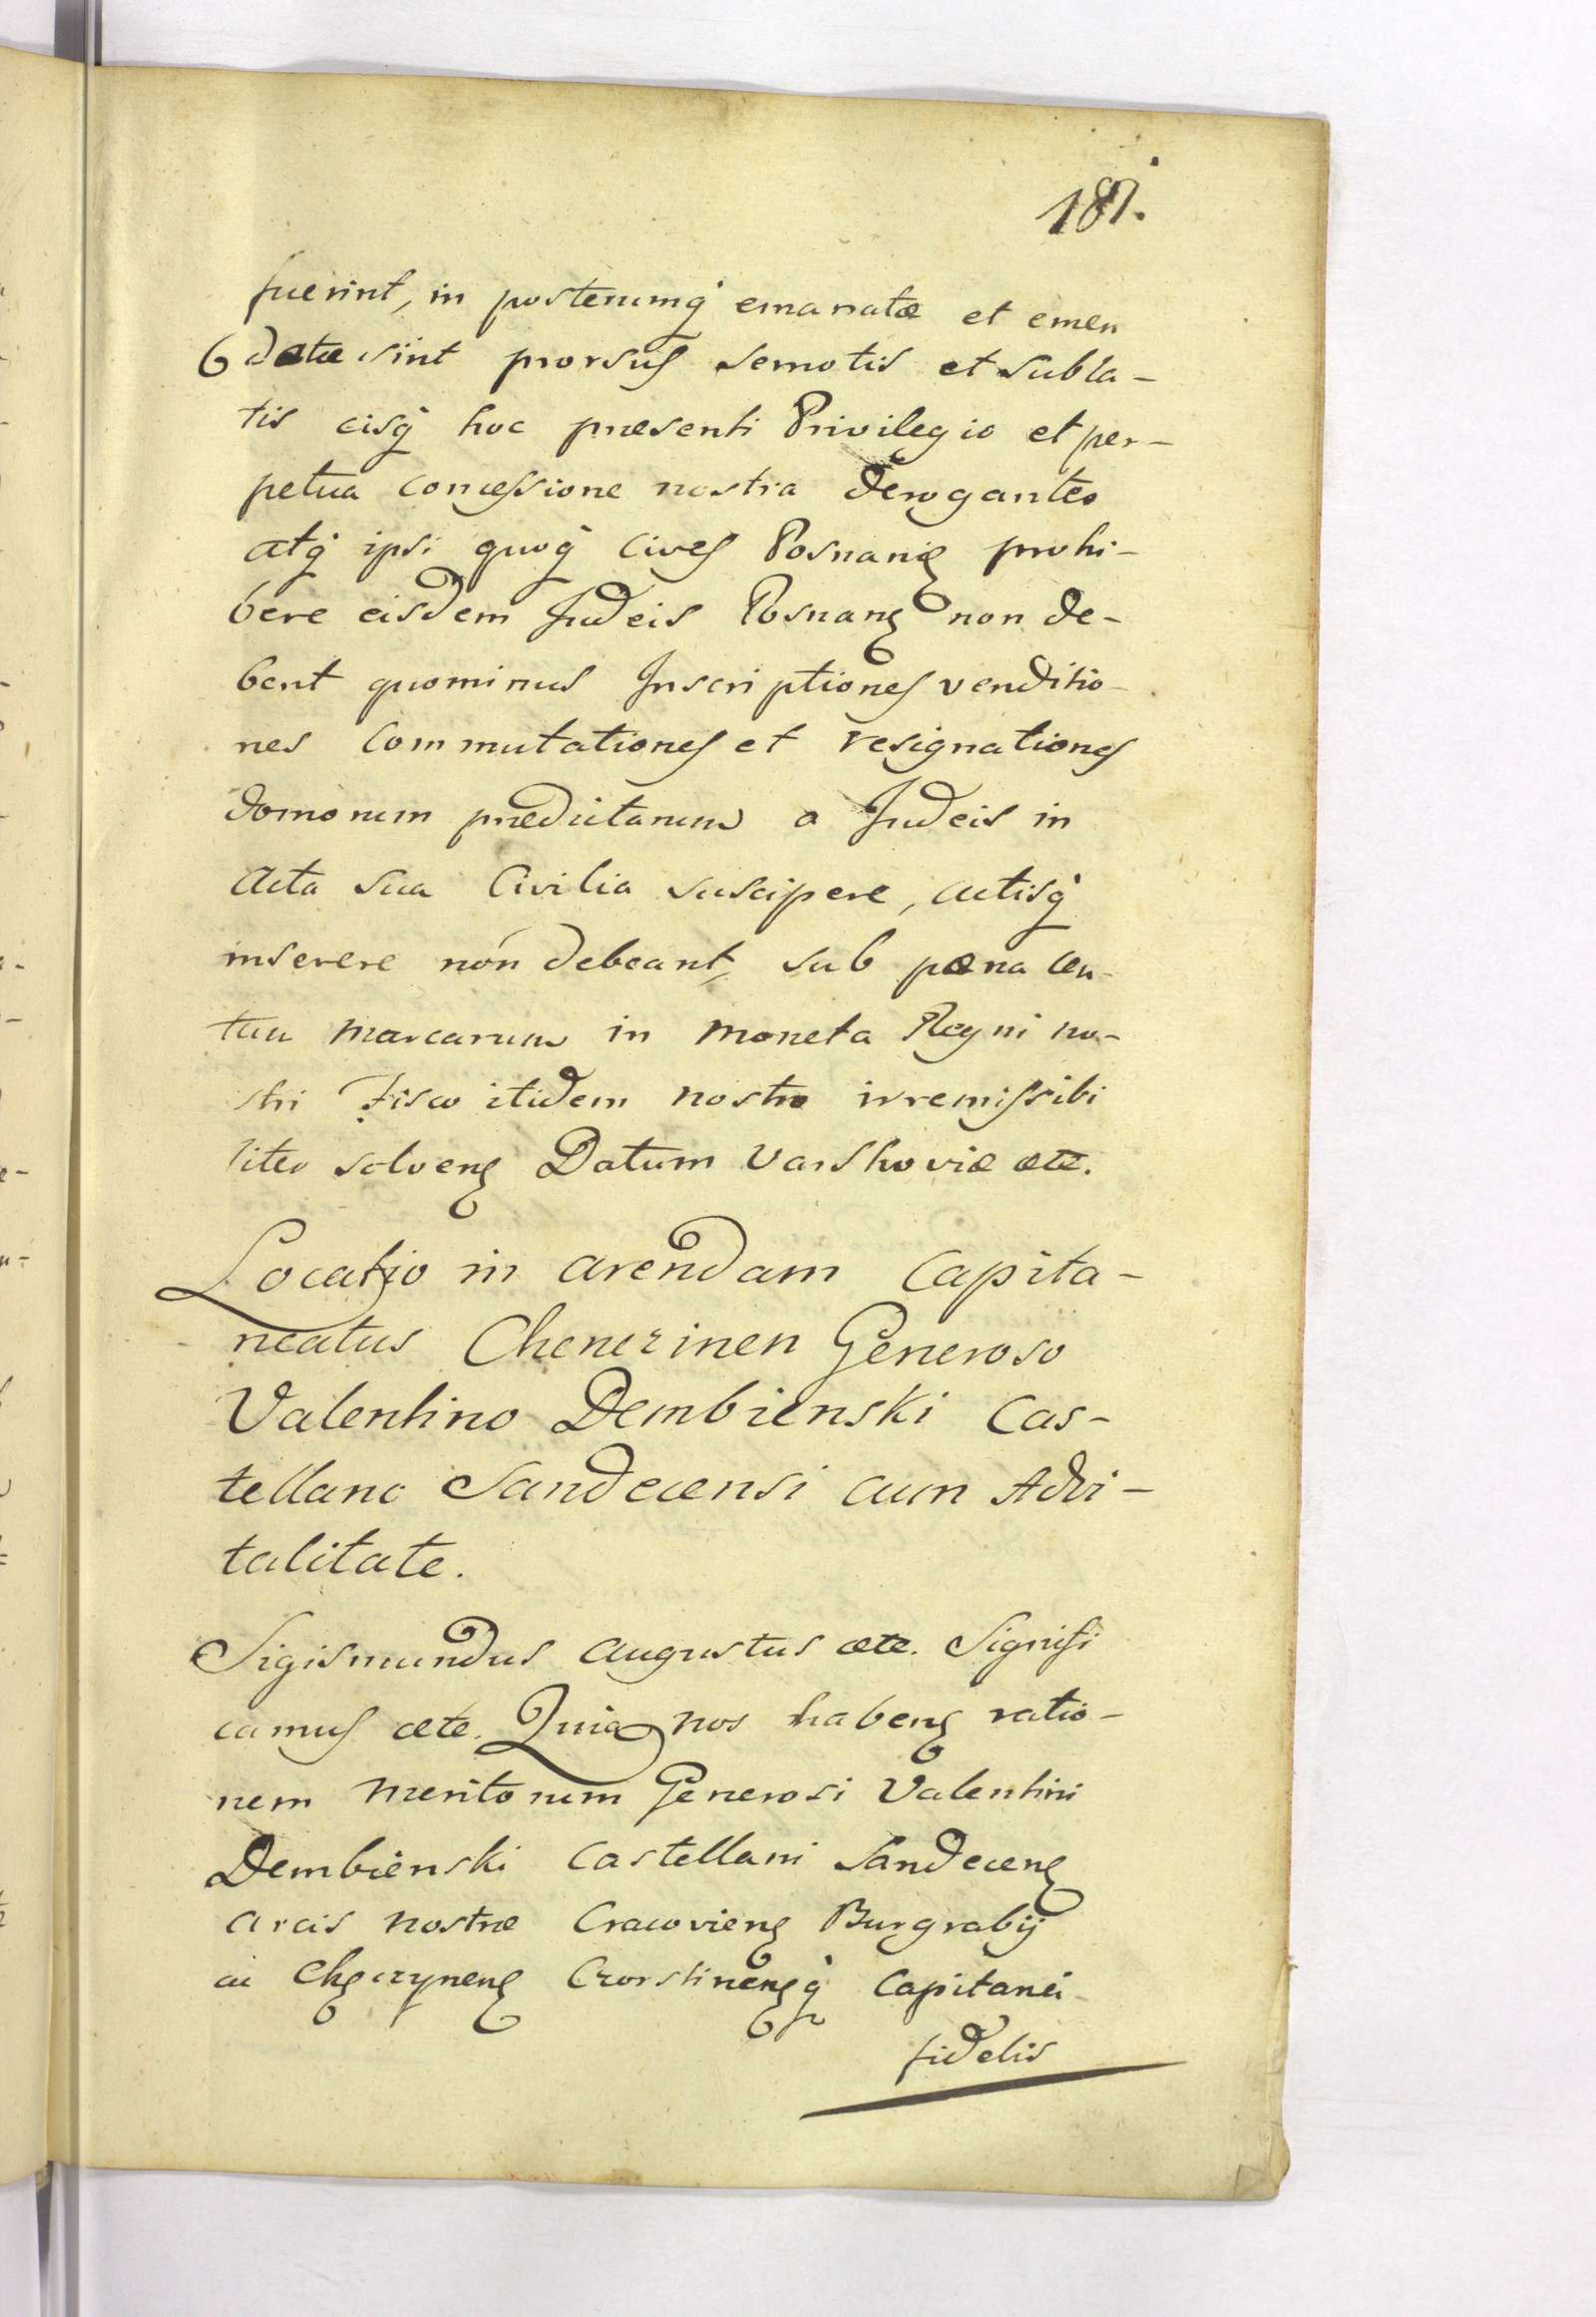 187.
fuerint, in posterumq́ emanatæ et emen
datæ sint prorsus semotis et subla-
tis eisq́ hoc præsenti Privilegio et per-
petua concessione nostra derogantes
atq́ ipsi quoq́ cives Posnanię prohi-
bere eisdem Judeis Posnanę non de-
bent quominus Inscriptiones venditio-
nes Commutationes et resignationes
domorum prædictarum a Judeis in
Acta sua Civilia suscipere, actisq́
inserere nón debeant, sub pæna cen-
tum Marcarum in Moneta Regni no-
stri Fisco itidem nostro irremissibi
liter solvenę Datum Varshoviæ etc.
Locatio in arendam Capita-
neatus Chenerinen Generoso
Valentino Dembienski Cas-
tellano Sandecensi cum Advi-
talitate.
Sigismundus Augustus etc. Signifi
camus etc. Quia nos habenę ratio-
nem Meritorum Generosi Valentini
Dembienski Castellani Sandecenę
Arcis Nostræ Cracovienę Burgrabij
ac Chęczynenę Crorstinenęq́ Capitanei
fidelis